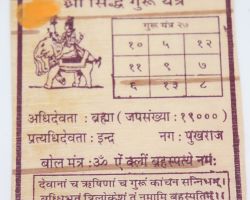 श्री सिद्ध गुरू यंत्र
गुरू यंत्र २७
१० ५ १२
११ ९ ७
६ १३ ८
अधिदेवता : ब्रह्मा ( जपसंख्या : १९००० )
प्रत्यधिदेवता : इन्द्र नग : पुखराज
बोल मंत्र : ॐ ऐं क्लीं बृहस्पत्ये नमः
देवानां च ऋषिणां च गुरूं कांचन सन्निभम्।
बुध्दिभूतं त्रिलोकेशं तं नमामि बृहस्पतिम्।